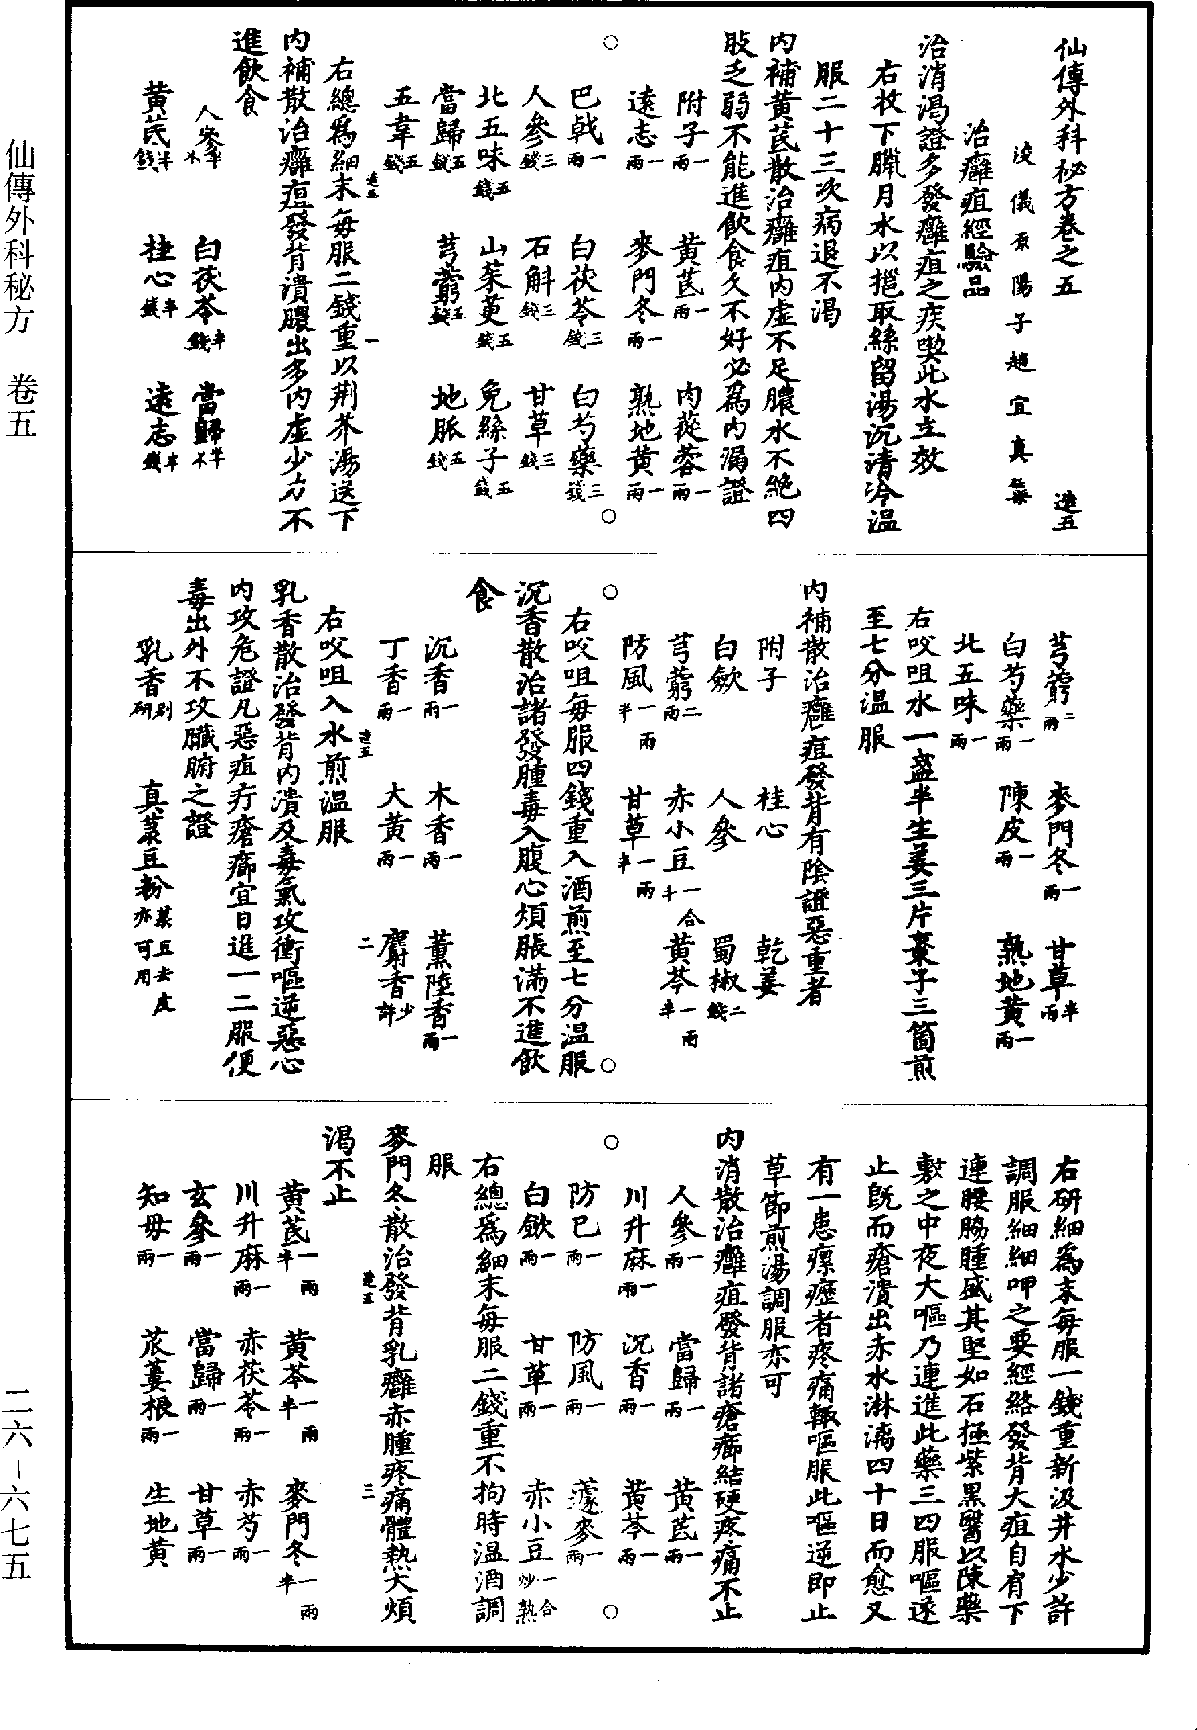 仙傳外科秘方　卷五
二六－六七五
仙傳外科秘方卷之五　遠五
浚儀原陽子趙宜真集
治癰疽經驗品
治消渴證多發癰疽之疾喫此水立效
右收下臘月水以抱取絲留湯沉清冷温
服二十三次病退不渴
内補黃芪散治癰疽内虚不足膿水不絶四
肢乏弱不能進飲食久不好必為内漏證
附子一兩　黃芪一兩　肉蓯蓉一兩
遠志一兩　麥門冬一兩　熟地黃一兩
巴戟一兩　白茯苓三錢　白芍藥三錢
人參三錢　石斛三錢　甘草三錢
北五味五錢　山茱萸五錢　兔絲子五錢
當歸五錢　芎藭五錢　地脈五錢
五韋五錢
右總為細末每服二錢重以荆芥湯送下
遠五　一
内補散治癰疽發背潰膿出多内虚少力不
進飲食
人參半　白茯苓半錢　當歸半
黃芪半錢　桂心半錢　遠志半錢
芎藭二兩　麥門冬一兩　甘草半兩
白芍藥一兩　陳皮一兩　熟地黃一兩
北五味一兩
右㕮咀水一盞半生姜三片棗子三箇煎
至七分温服
内補散治癰疽發背有陰證惡重者
附子　桂心　乾姜
白歛　人參　蜀椒二錢
芎藭二兩　赤小豆一合　黃芩一兩半
防風一兩半　甘草一兩半
右㕮咀每服四錢重入酒煎至七分温服
沉香散治諸發腫毒入腹心煩脹滿不進飲
食
沉香一兩　木香一兩　薰陸香一兩
丁香一兩　大黃一兩　麝香少許
遠五　二
右㕮咀入水煎温服
乳香散治發背内潰及毒氣攻衝嘔逆惡心
内攻危證凡惡疽疔瘡癤宜日進一二服便
毒出外不攻臟腑之證
乳香別研　真菉豆粉菉豆去皮亦可用
右研細為末每服一錢重新汲井水少許
調服細細呷之要經絡發背大疽自有下
連腰脇腫盛其堅如石極紫黑醫以陳藥
敷之中夜大嘔乃連進此藥三四服嘔遂
止既而瘡潰出赤水淋漓四十日而愈又
有一患瘰癧者疼痛輒嘔服此嘔逆即止
草節煎湯調服亦可
内消散治癰疽發背諸瘡癤結硬疼痛不止
人參一兩　當歸一兩　黃芪一兩
川升麻一兩　沉香一兩　黃芩一兩
防已一兩　防風一兩　蘧麥一兩
白歛一兩　甘草一兩　赤小豆一合炒熟
右總為細末每服二錢重不拘時温酒調
服
麥門冬散治發背乳癰赤腫疼痛體熱大煩
遠五　三
渴不止
黃芪一兩半　黃芩一兩半　麥門冬一兩半
川升麻一兩　赤茯苓一兩　赤芍一兩
玄參一兩　當歸一兩　甘草一兩
知母一兩　苽蔞根一兩　生地黃